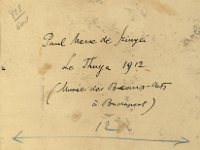 Paul Merse de
La Thuya 1912
(Musée des Beaux-Arts
à Budapest)
12